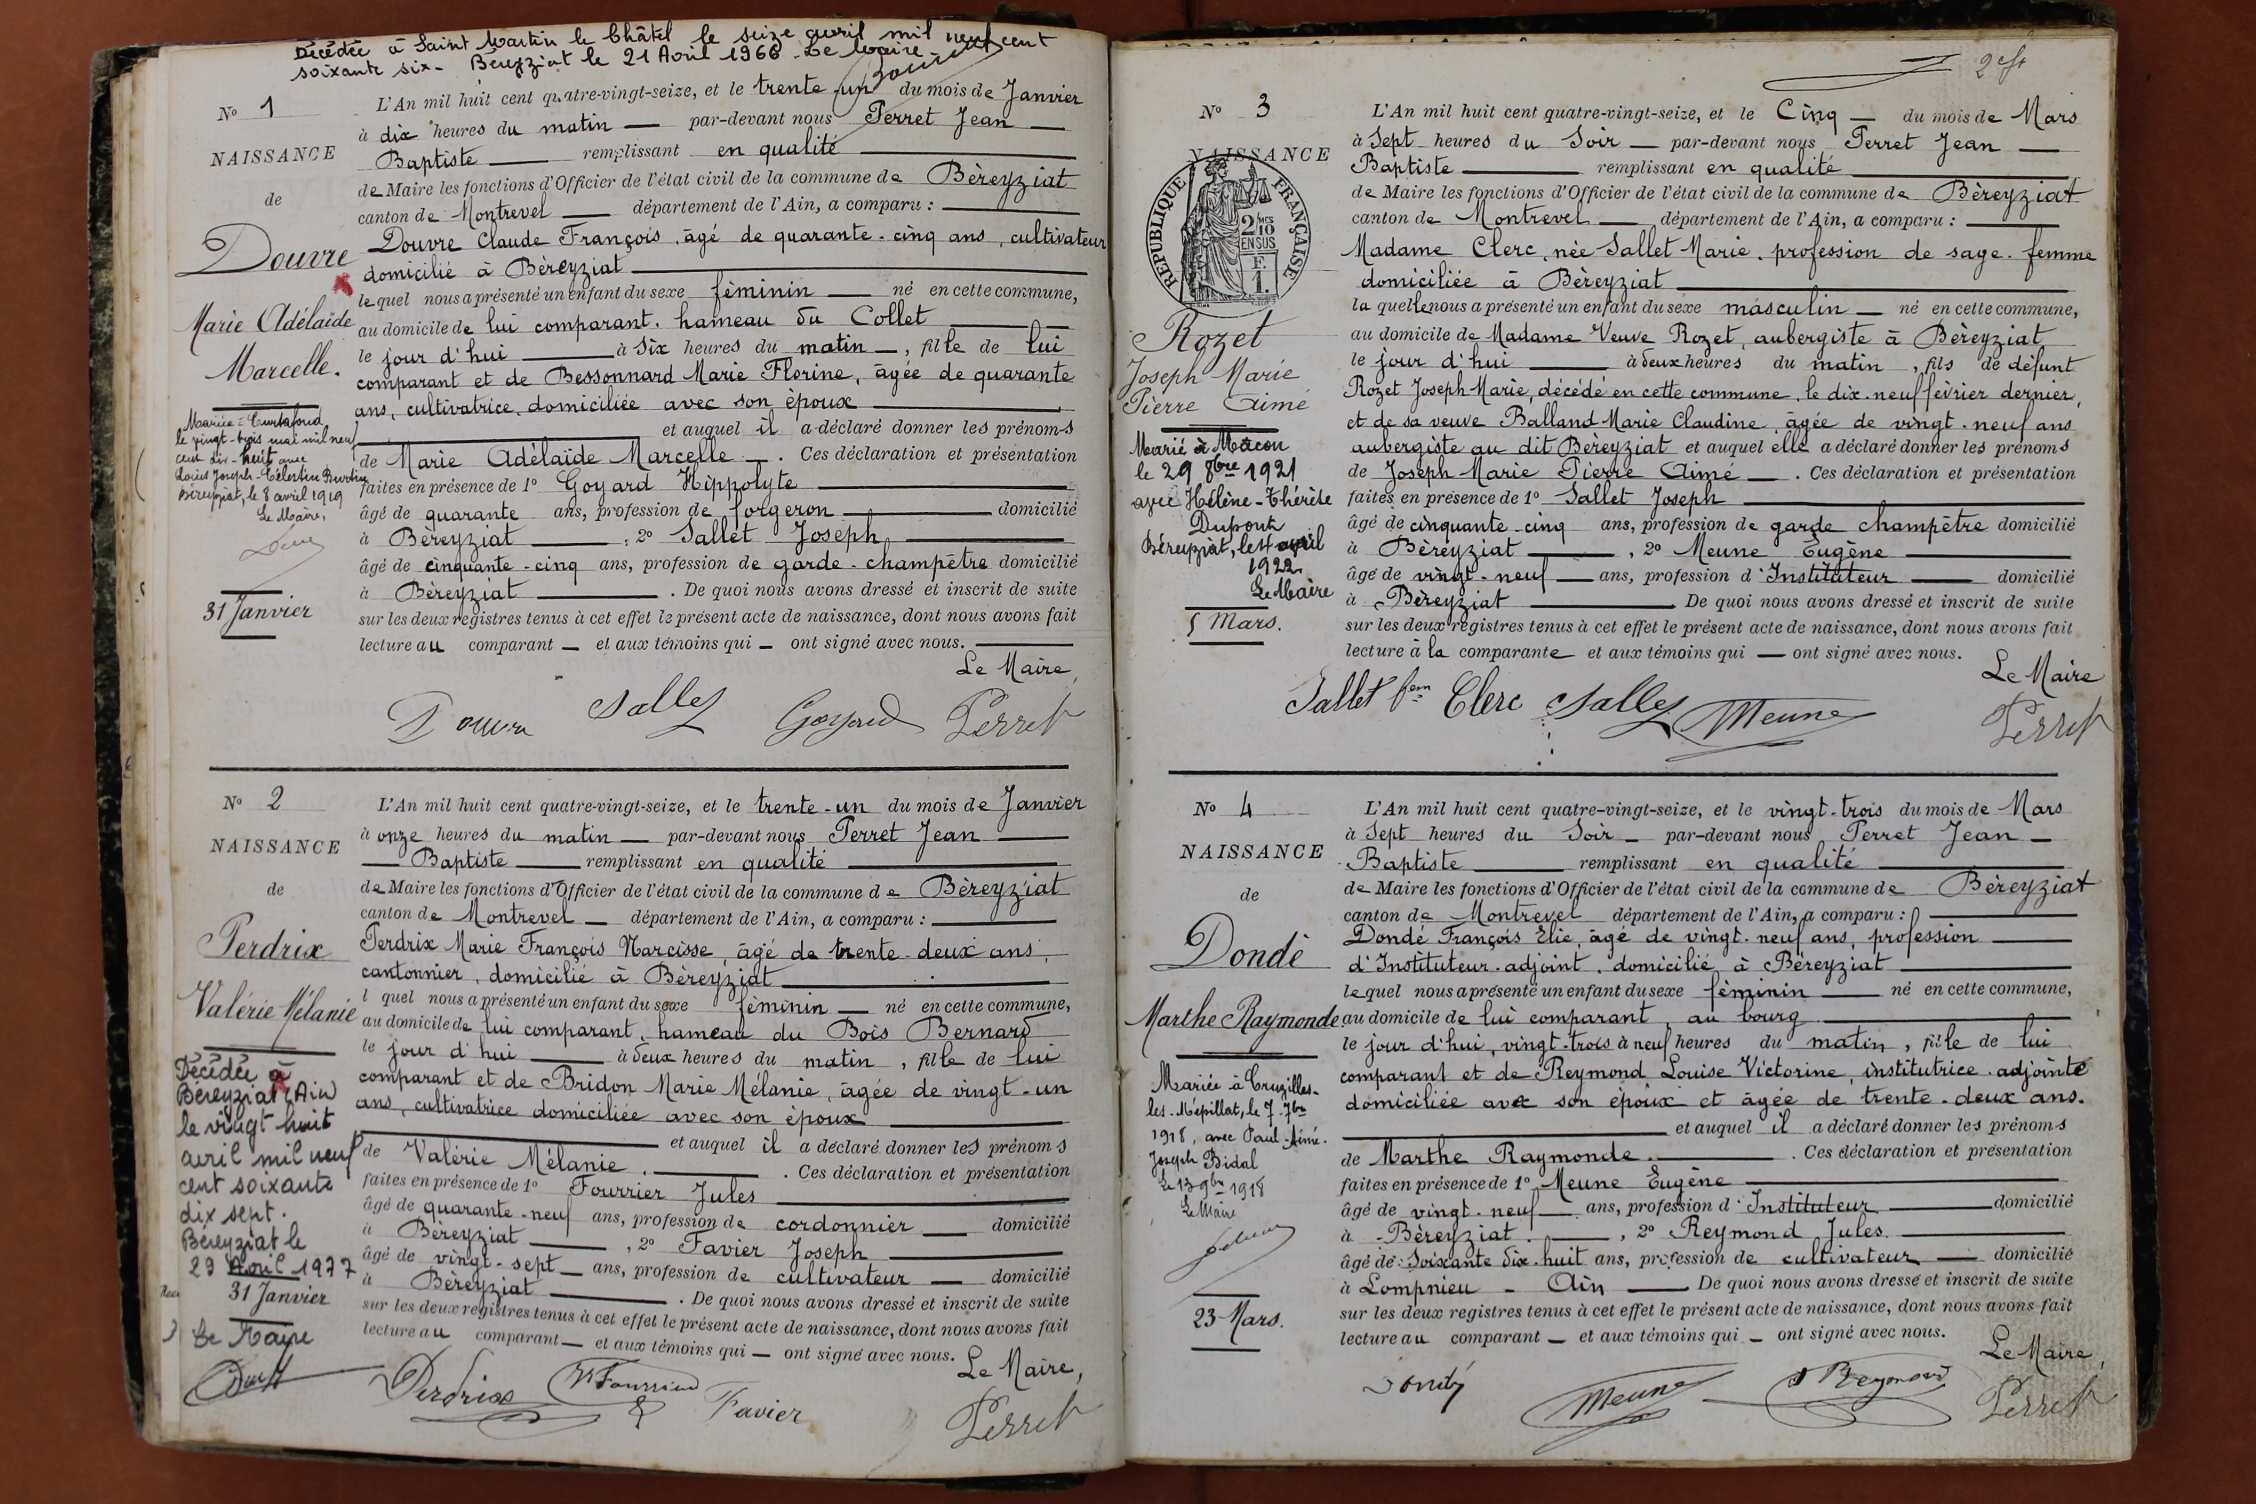 Décédée à Saint Martin le Châtel le seize avril mil neuf cent
soixante six - Béreyziat le 21 Avril 1966 - Le Maire -
N° 1
NAISSANCE
de
Douvre
Marie Adélaïde
Marcelle.
Mariée à Curtafond
le vingt-trois mai mil neuf
cent dix-huit avec
Louis Joseph-Célestin Burtin
Béreyziat, le 8 avril 1919
Le Maire,
31 Janvier
L'An mil huit cent quatre-vingt-seize, et le trente-un du mois de Janvier
à dix heures du matin — par-devant nous Perret Jean —
Baptiste — remplissant en qualité —
de Maire les fonctions d'Officier de l'état civil de la commune de Bèreyziat
canton de Montrevel — département de l'Ain, a comparu : —
Douvre Claude François, âgé de quarante-cinq ans, cultivateur
domicilié à Bèreyziat —
lequel nous a présenté un enfant du sexe fèminin — né en cette commune,
au domicile de lui comparant, hameau du Collet —
le jour d'hui — à Six heures du matin —, fille de lui
comparant et de Bessonnard Marie Florine, âgée de quarante
ans, cultivatrice domiciliée avec son èpoux —
— et auquel il a déclaré donner les prénoms
de Marie Adèlaïde Marcelle —. Ces déclaration et présentation
faites en présence de 1° Goyard Hippolyte —
âgé de quarante ans, profession de forgeron — domicilié
à Bèreyziat —, 2° Sallet Joseph —
âgé de cinquante-cinq ans, profession de garde-champêtre domicilié
à Bèreyziat —. De quoi nous avons dressé et inscrit de suite
sur les deux registres tenus à cet effet le présent acte de naissance, dont nous avons fait
lecture au comparant — et aux témoins qui — ont signé avec nous. —
Le Maire,
Douvre Sallet Goyard Perret
N° 2
NAISSANCE
de
Perdrix
Valérie Mélanie
Décédée à
Béreyziat (Ain)
le vingt huit
avril mil neuf
cent soixante
dix sept.
Béreyziat le
29 Avril 1977
31 Janvier
Le Maire
L'An mil huit cent quatre-vingt-seize, et le trente-un du mois de Janvier
à onze heures du matin — par-devant nous Perret Jean —
— Baptiste — remplissant en qualité —
de Maire les fonctions d'Officier de l'état civil de la commune de Bèreyziat
canton de Montrevel — département de l'Ain, a comparu : —
Perdrix Marie François Narcisse, âgé de trente-deux ans,
cantonnier, domicilié à Bèreyziat —
l quel nous a présenté un enfant du sexe fèminin — né en cette commune,
au domicile de lui comparant, hameau du Bois Bernard
le jour d'hui — à deux heures du matin, fille de lui
comparant et de Bridon Marie Mélanie, âgée de vingt-un
ans, cultivatrice domiciliée avec son èpoux —
— et auquel il a déclaré donner les prénoms
de Valérie Mélanie. —. Ces déclaration et présentation
faites en présence de 1° Fourrier Jules —
âgé de quarante-neuf ans, profession de cordonnier — domicilié
à Bèreyziat —, 2° Favier Joseph —
âgé de vingt-sept — ans, profession de cultivateur — domicilié
à Bèreyziat —. De quoi nous avons dressé et inscrit de suite
sur les deux registres tenus à cet effet le présent acte de naissance, dont nous avons fait
lecture au comparant — et aux témoins qui — ont signé avec nous.
Le Maire,
Perdrix Fourrier Favier Perret
N° 3
NAISSANCE
RÉPUBLIQUE FRANÇAISE
2/10
EN SUS
F.
1.
Rozet
Joseph Marie
Pierre Aimé
Marié à Mâcon
le 29 8bre 1921
avec Hélène-Thérèse
Dupont
Béreyziat, le 4 avril
1922
Le Maire
5 Mars.
L'An mil huit cent quatre-vingt-seize, et le Cinq — du mois de Mars
à Sept heures du Soir — par-devant nous Perret Jean —
Baptiste — remplissant en qualité —
de Maire les fonctions d'Officier de l'état civil de la commune de Bèreyziat
canton de Montrevel — département de l'Ain, a comparu : —
Madame Clerc, née Sallet Marie, profession de sage-femme
domiciliée à Bèreyziat —
la quelle nous a présenté un enfant du sexe masculin — né en cette commune,
au domicile de Madame Veuve Rozet, aubergiste à Bèreyziat
le jour d'hui — à deux heures du matin, fils de défunt
Rozet Joseph-Marie, décédé en cette commune, le dix-neuf février dernier,
et de sa veuve Balland Marie Claudine, âgée de vingt-neuf ans
aubergiste au dit Bèreyziat et auquel elle a déclaré donner les prénoms
de Joseph Marie Pierre Aimé —. Ces déclaration et présentation
faites en présence de 1° Sallet Joseph —
âgé de cinquante-cinq ans, profession de garde champêtre domicilié
à Bèreyziat —, 2° Meune Eugène —
âgé de vingt-neuf — ans, profession d'Instituteur — domicilié
à Bèreyziat — De quoi nous avons dressé et inscrit de suite
sur les deux registres tenus à cet effet le présent acte de naissance, dont nous avons fait
lecture à la comparante et aux témoins qui — ont signé avec nous.
Le Maire
Sallet fem Clerc Sallet Meune Perret
N° 4
NAISSANCE
de
Dondé
Marthe Raymonde
Mariée à Cruzilles-
les-Mépillat, le 7 7bre
1918, avec Paul-Aimé-
Joseph Bidal
Le 13 9bre 1918
Le Maire
23 Mars.
L'An mil huit cent quatre-vingt-seize, et le vingt-trois du mois de Mars
à Sept heures du Soir — par-devant nous Perret Jean —
Baptiste — remplissant en qualité —
de Maire les fonctions d'Officier de l'état civil de la commune de Bèreyziat
canton de Montrevel département de l'Ain, a comparu : —
Dondé François Elie, âgé de vingt-neuf ans, profession —
d'Instituteur-adjoint, domicilié à Bèreyziat —
lequel nous a présenté un enfant du sexe fèminin — né en cette commune,
au domicile de lui comparant, au bourg —
le jour d'hui, vingt-trois à neuf heures du matin, fille de lui
comparant et de Reymond Louise Victorine, institutrice-adjointe
domiciliée avec son époux et âgée de trente-deux ans.
— et auquel il a déclaré donner les prénoms
de Marthe Raymonde. —. Ces déclaration et présentation
faites en présence de 1° Meune Eugène —
âgé de vingt-neuf — ans, profession d'Instituteur — domicilié
à Bèreyziat. —, 2° Reymond Jules. —
âgé de Soixante dix-huit ans, profession de cultivateur — domicilié
à Lompnieu - Ain — De quoi nous avons dressé et inscrit de suite
sur les deux registres tenus à cet effet le présent acte de naissance, dont nous avons fait
lecture au comparant — et aux témoins qui — ont signé avec nous.
Le Maire,
Dondé Meune Reymond Perret